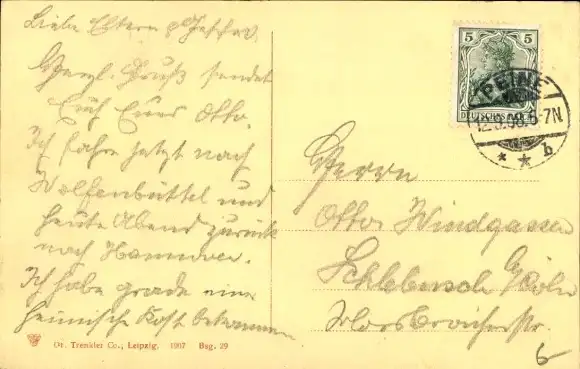 Liebe Eltern & Geschw.
Herzl. Gruß sendet
Euch Euer Otto.
Ich fahre jetzt nach
Wolfenbüttel und
heute Abend zurück
nach Hannover.
Ich habe grade eine
heimische Kost bekommen
Dr. Trenkler Co., Leipzig. 1907 Bsg. 29
5 5
DEUTSCHES REICH
PEINE
12.9.08. 6-7N
* * b
Herrn
Otto Windgassen
Schlebusch b/Köln
6